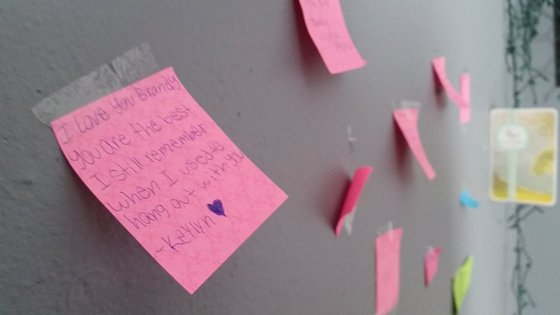 I love You Brandy
you are the best
I still remember
when I used to
hang out with you
-Kaylyn